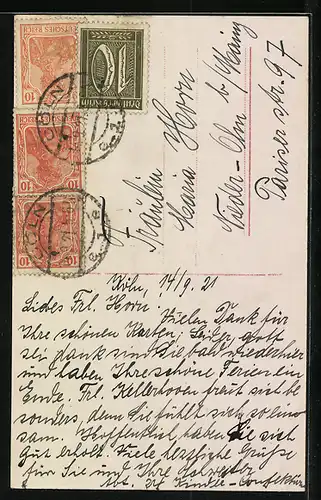 DEUTSCHES REICH
10
10
Deutsches Reich
10 10
10 10
CÖLN
CÖLN
Fräulein
Maria Horn
Nieder-Olm b/Mainz
Pariser str. 97
Köln, 14/9. 21
Liebes Frl. Horn:
Vielen Dank für
Ihre schönen Karten; Leider, gott
sei dank sind Sie bald wieder hier
und haben Ihre schöne Ferien ein
Ende. Frl. Kellerhoven freut sich be
sonders, denn Sie fühlt sich so einsam
sam. Hoffentlich haben Sie sich
gut erholt. Viele herzliche Grüße
für Sie und Ihre Schwester
Abt. 24 Kinder-Konfektion